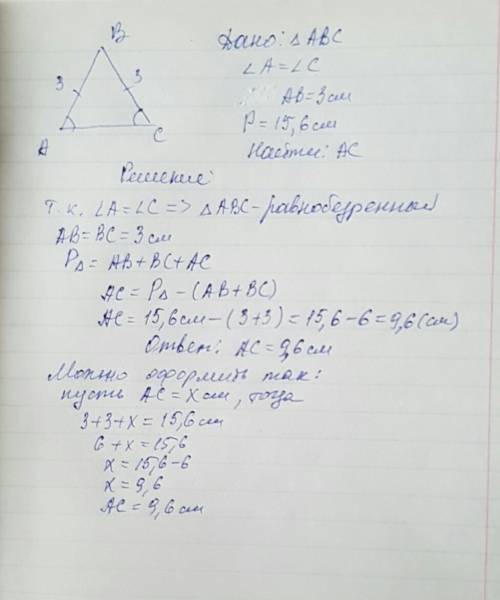 B
3 3
A C
Дано: △ABC
∠A=∠C
AB=3см
P=15,6см
Найти: AC
Решение:
т.к. ∠A=∠C => △ABC-равнобедренный
AB=BC=3см
P△= AB+BC+AC
AC= P△-(AB+BC)
AC=15,6см-(3+3)=15,6-6=9,6(см)
Ответ: AC=9,6см
Можно оформить так:
пусть AC=xсм, тогда
3+3+x=15,6см
6+x=15,6
x=15,6-6
x=9,6
AC=9,6см